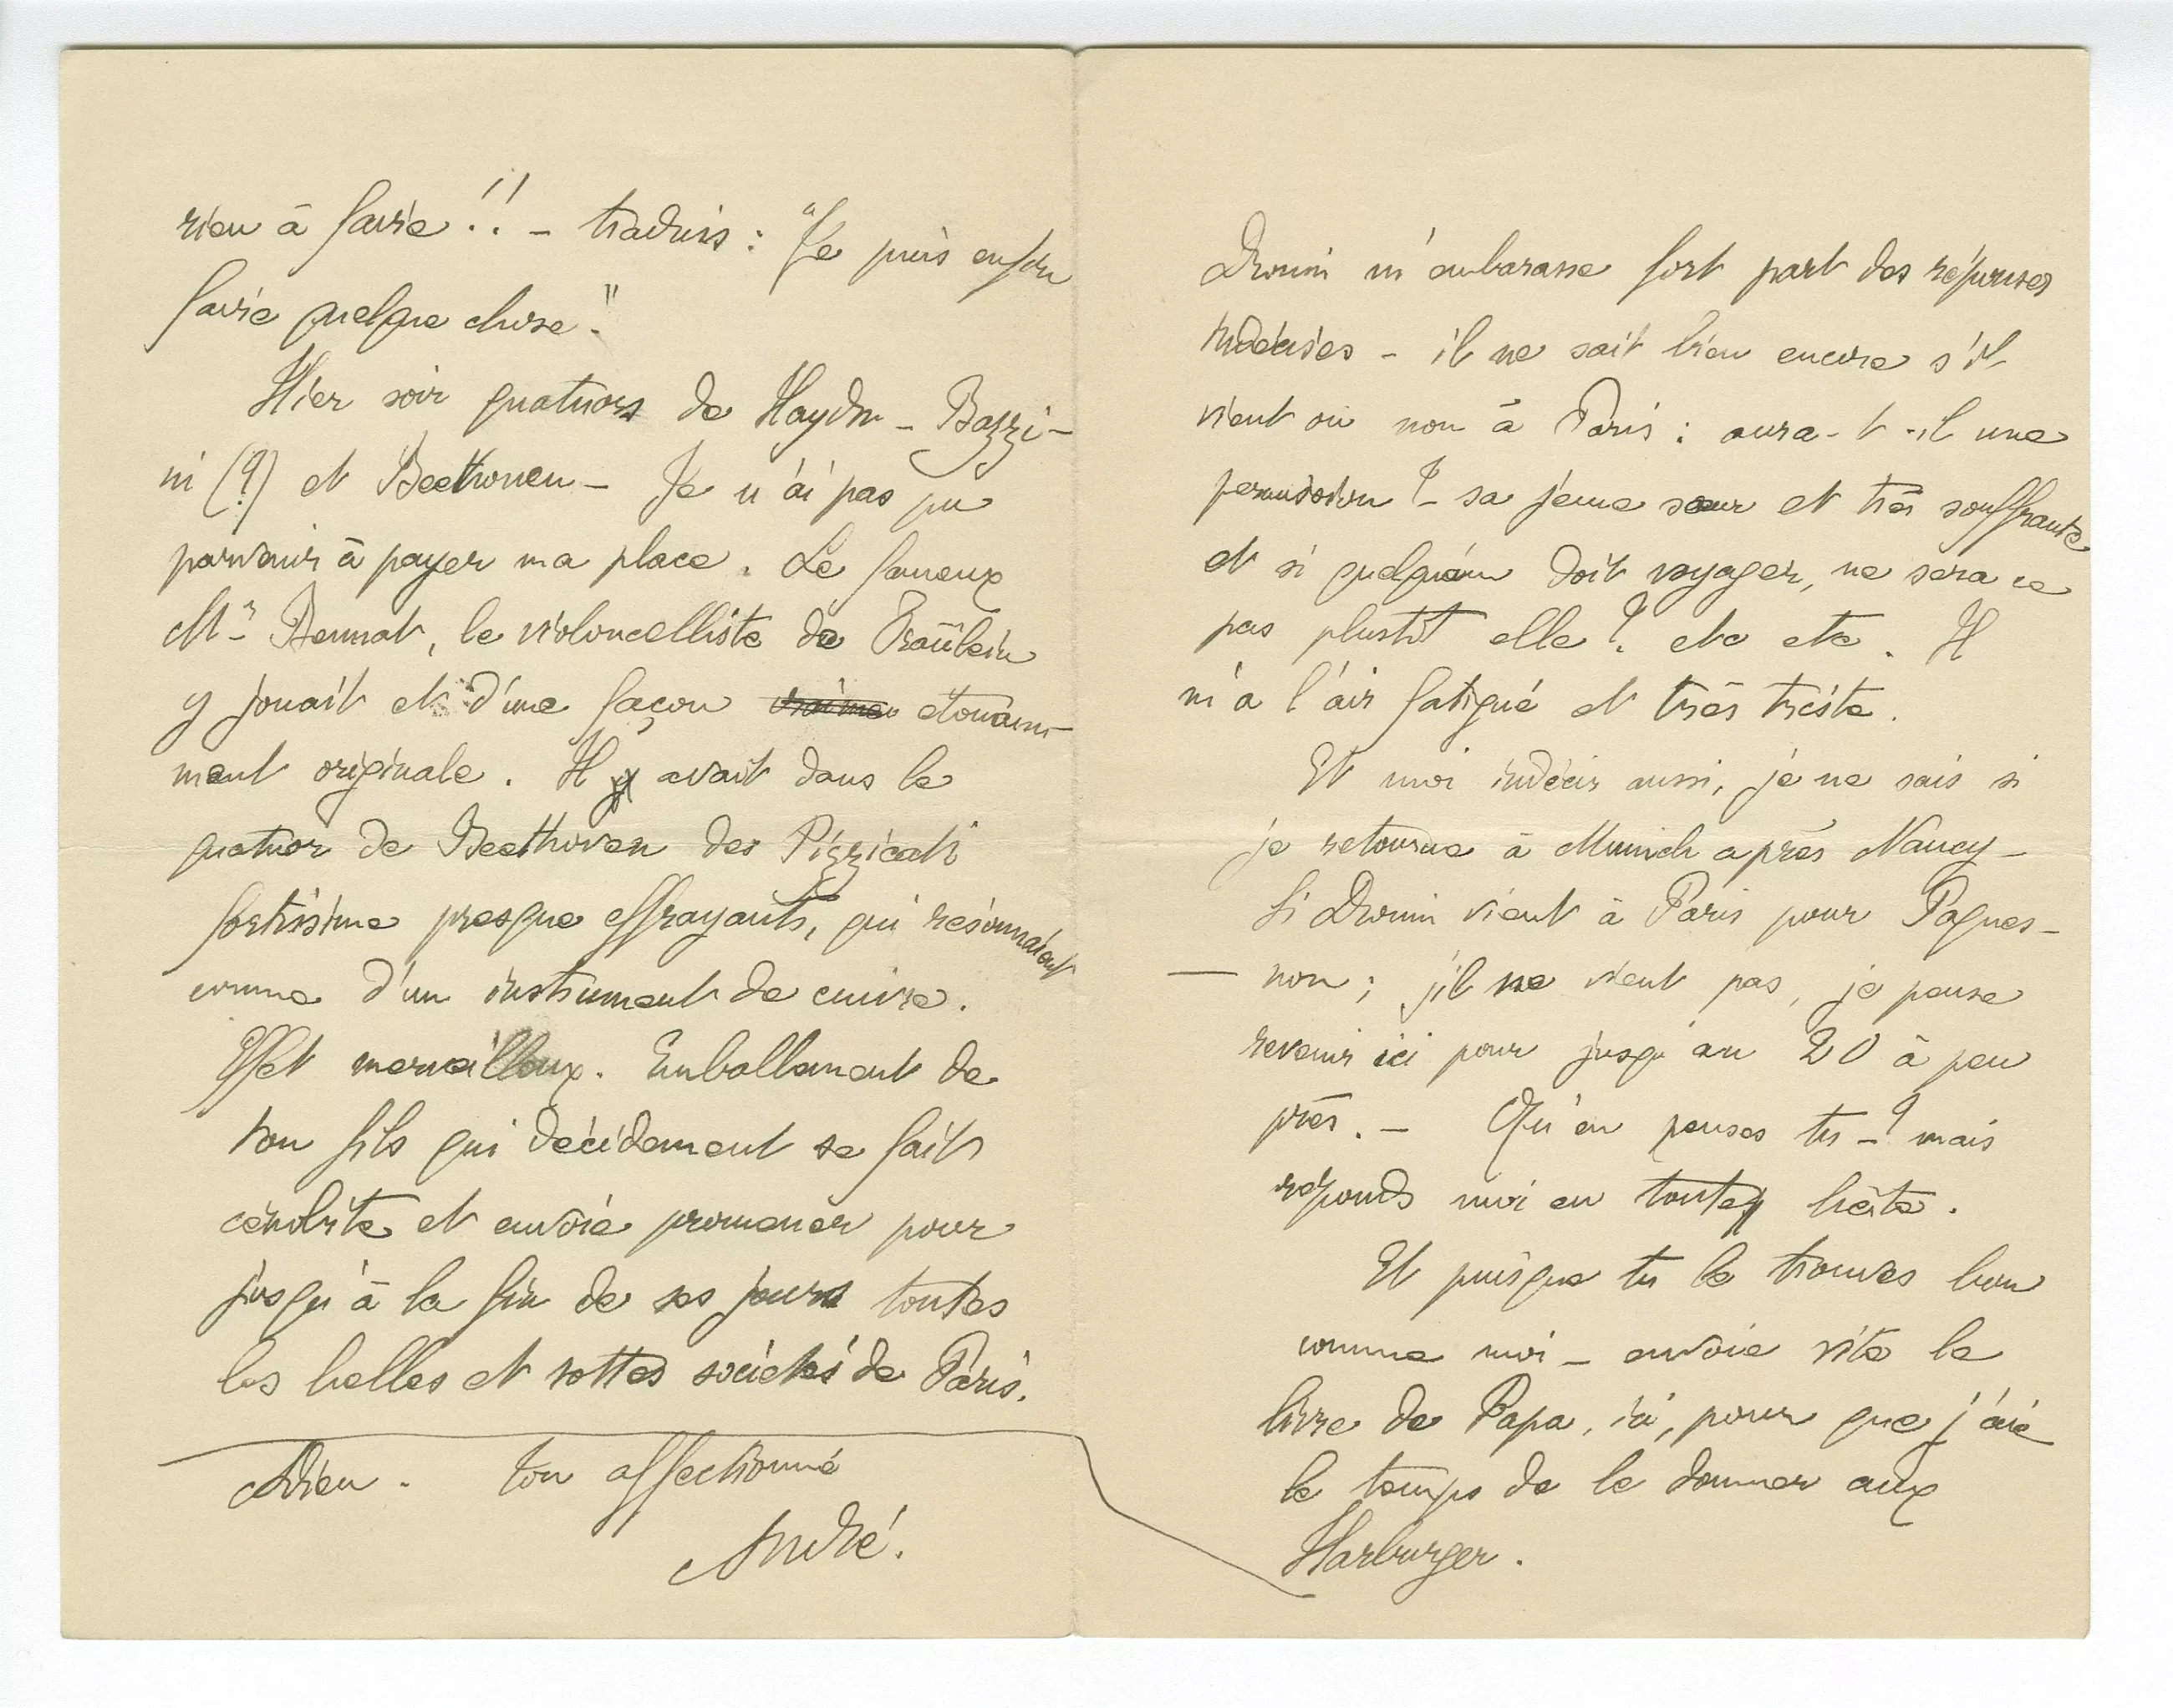 rien à faire !! – traduis : "Je puis enfin
faire quelque chose."
Hier soir quatuors de Haydn – Bazzi-
ni (?) et Beethoven – Je n'ai pas pu
parvenir à payer ma place. Le fameux
Mr Bennat, le violoncelliste de Fraülein
y jouait et d'une façon vraimen etonam-
ment originale. Il y avait dans le
quatuor de Beethoven des Pizzicati
fortissime presque effrayants, qui résonnaient
comme d'un instrument de cuivre.
Effet merveilleux. Emballement de
ton fils qui décidement se fait
cénobite et envoie promener pour
jusqu'à la fin de ses jours toutes
les belles et sottes sociétés de Paris.
Adieu. ton affectionné
André.
Drouin m'embarasse fort part des réponses
indécises – il ne sait bien encore s'il
vient ou non à Paris : aura-t-il une
permission ? – sa jeune sœur et très souffrante
et si quelqu'un doit voyager, ne sera ce
pas plustôt elle ? etc etc. Il
m'a l'air fatigué et très triste.
Et moi indécis aussi, je ne sais si
je retourne à Munich après Nancy –
Si Drouin vient à Paris pour Paques –
— non ; s'il ne vient pas, je pense
revenir ici pour jusqu'au 20 à peu
près. – Qu'en penses tu – ? mais
réponds moi en toute hâte.
Et puisque tu le trouves bon
comme moi – envoie vite le
livre de Papa, ici, pour que j'aie
le temps de le donner aux
Harburger.